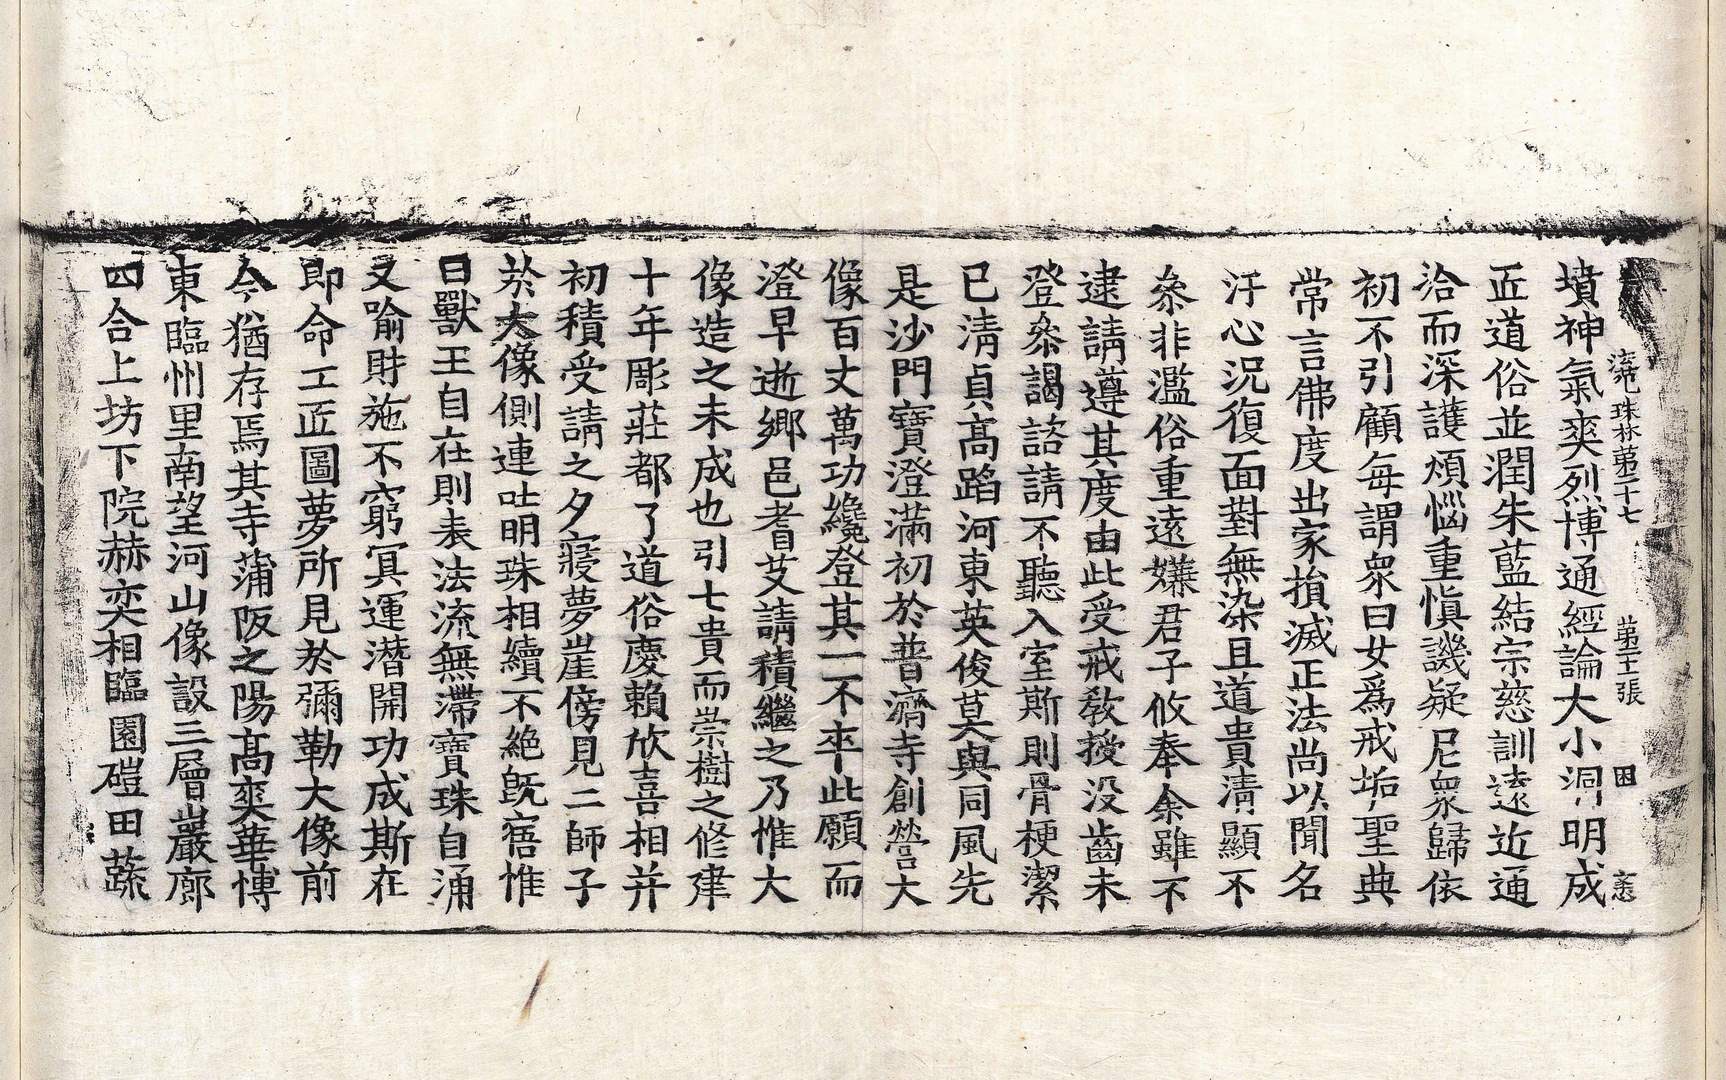 法苑珠林第二十七　第二十張　困　惷
墳神氣爽烈博通經論大小洞明成
匠道俗並潤朱藍結宗慈訓遠近通
洽而深護煩惱重慎譏疑尼衆歸依
初不引顧每謂衆曰女爲戒垢聖典
常言佛度出家損滅正法尚以聞名
汙心況復面對無染且道貴清顯不
叅非濫俗重遠嫌君子攸奉余雖不
逮請遵其度由此受戒教授没齒未
登叅謁諮請不聽入室斯則骨梗潔
已清貞高蹈河東英俊莫與同風先
是沙門寶澄滿初於普濟寺創營大
像百丈萬功纔登其一不卒此願而
澄早逝鄉邑耆艾請積繼之乃惟大
像造之未成也引七貴而崇樹之修建
十年彫莊都了道俗慶賴欣喜相幷
初積受請之夕寢夢崖傍見二師子
於大像側連吐明珠相續不絕既寤惟
曰獸王自在則表法流無滯寶珠自涌
又喻財施不窮冥運潛開功成斯在
即命工匠圖夢所見於彌勒大像前
今猶存焉其寺蒲阪之陽高爽華博
東臨州里南望河山像設三層巖廊
四合上坊下院赫奕相臨園磑田蔬